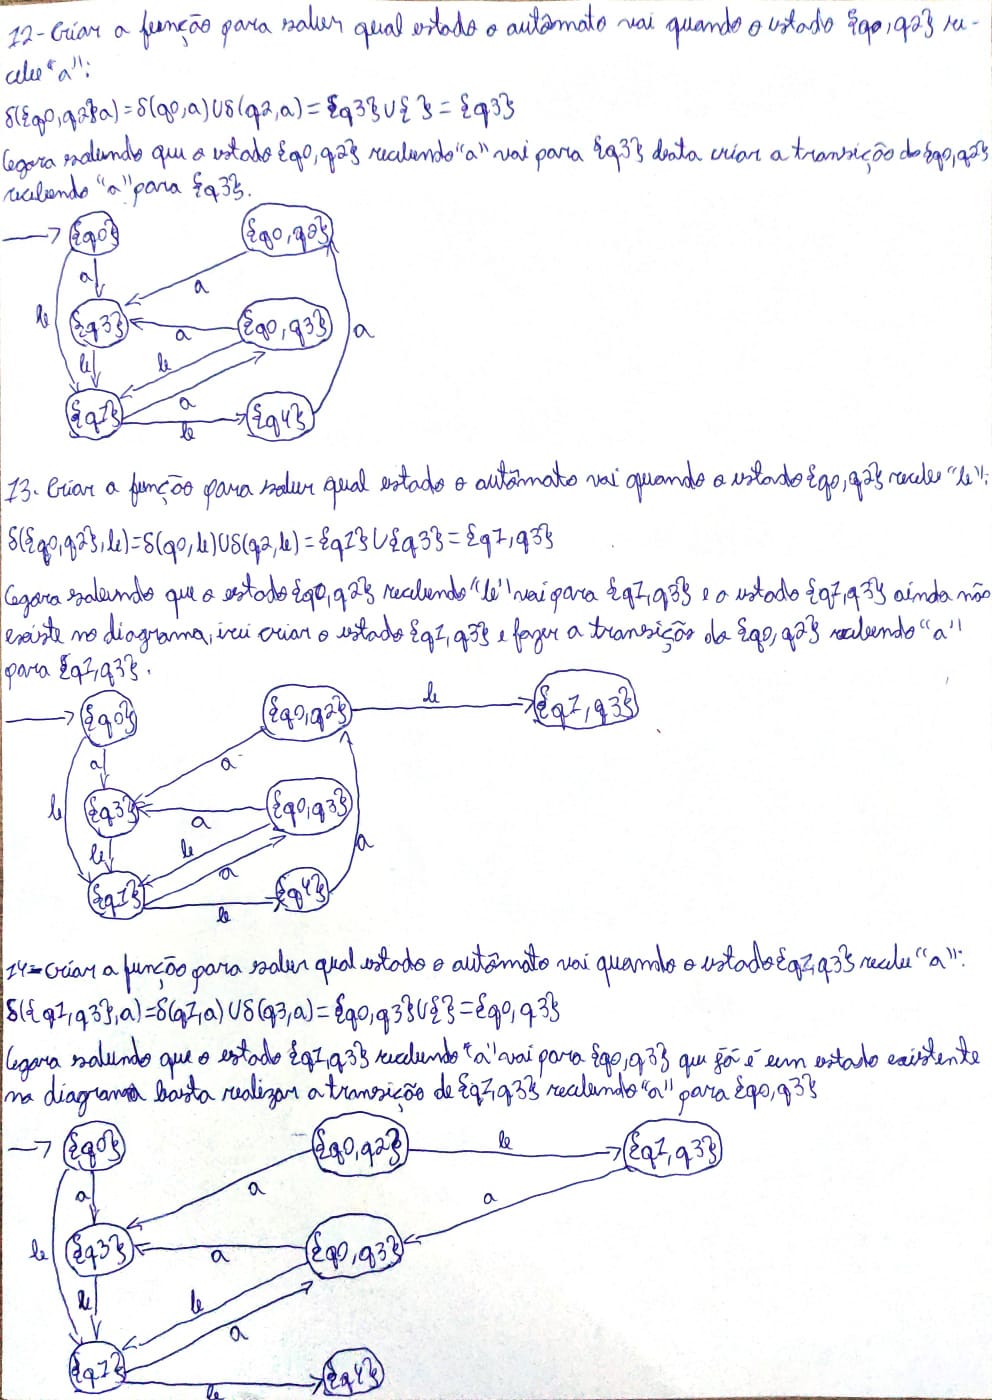 12- Criar a função para saber qual estado o autômato vai quando o estado {q0,q2} re-
cebe "a":
δ({q0,q2}a)=δ(q0,a)∪δ(q2,a)={q3}∪{ }={q3}
Agora sabendo que o estado {q0,q2} recebendo "a" vai para {q3} basta criar a transição de {q0,q2}
recebendo "a" para {q3}.
{q0} {q0,q2}
a a
b {q3} a {q0,q3} a
b b
a
{q1} b {q4}
13- Criar a função para saber qual estado o autômato vai quando o estado {q0,q2} recebe "b":
δ({q0,q2},b)=δ(q0,b)∪δ(q2,b)={q1}∪{q3}={q1,q3}
Agora sabendo que o estado {q0,q2} recebendo "b" vai para {q1,q3} e o estado {q1,q3} ainda não
existe no diagrama, irei criar o estado {q1,q3} e fazer a transição de {q0,q2} recebendo "a"
para {q1,q3}.
{q0} {q0,q2} b {q1,q3}
a a
b {q3} a {q0,q3}
b b a
a
{q1} b {q4}
14- Criar a função para saber qual estado o autômato vai quando o estado {q1,q3} recebe "a":
δ({q1,q3},a)=δ(q1,a)∪δ(q3,a)={q0,q3}∪{}={q0,q3}
Agora sabendo que o estado {q1,q3} recebendo "a" vai para {q0,q3} que já é um estado existente
no diagrama basta realizar a transição de {q1,q3} recebendo "a" para {q0,q3}
{q0} {q0,q2} b {q1,q3}
a a a
b {q3} a {q0,q3}
b b
a
{q1} b {q4}